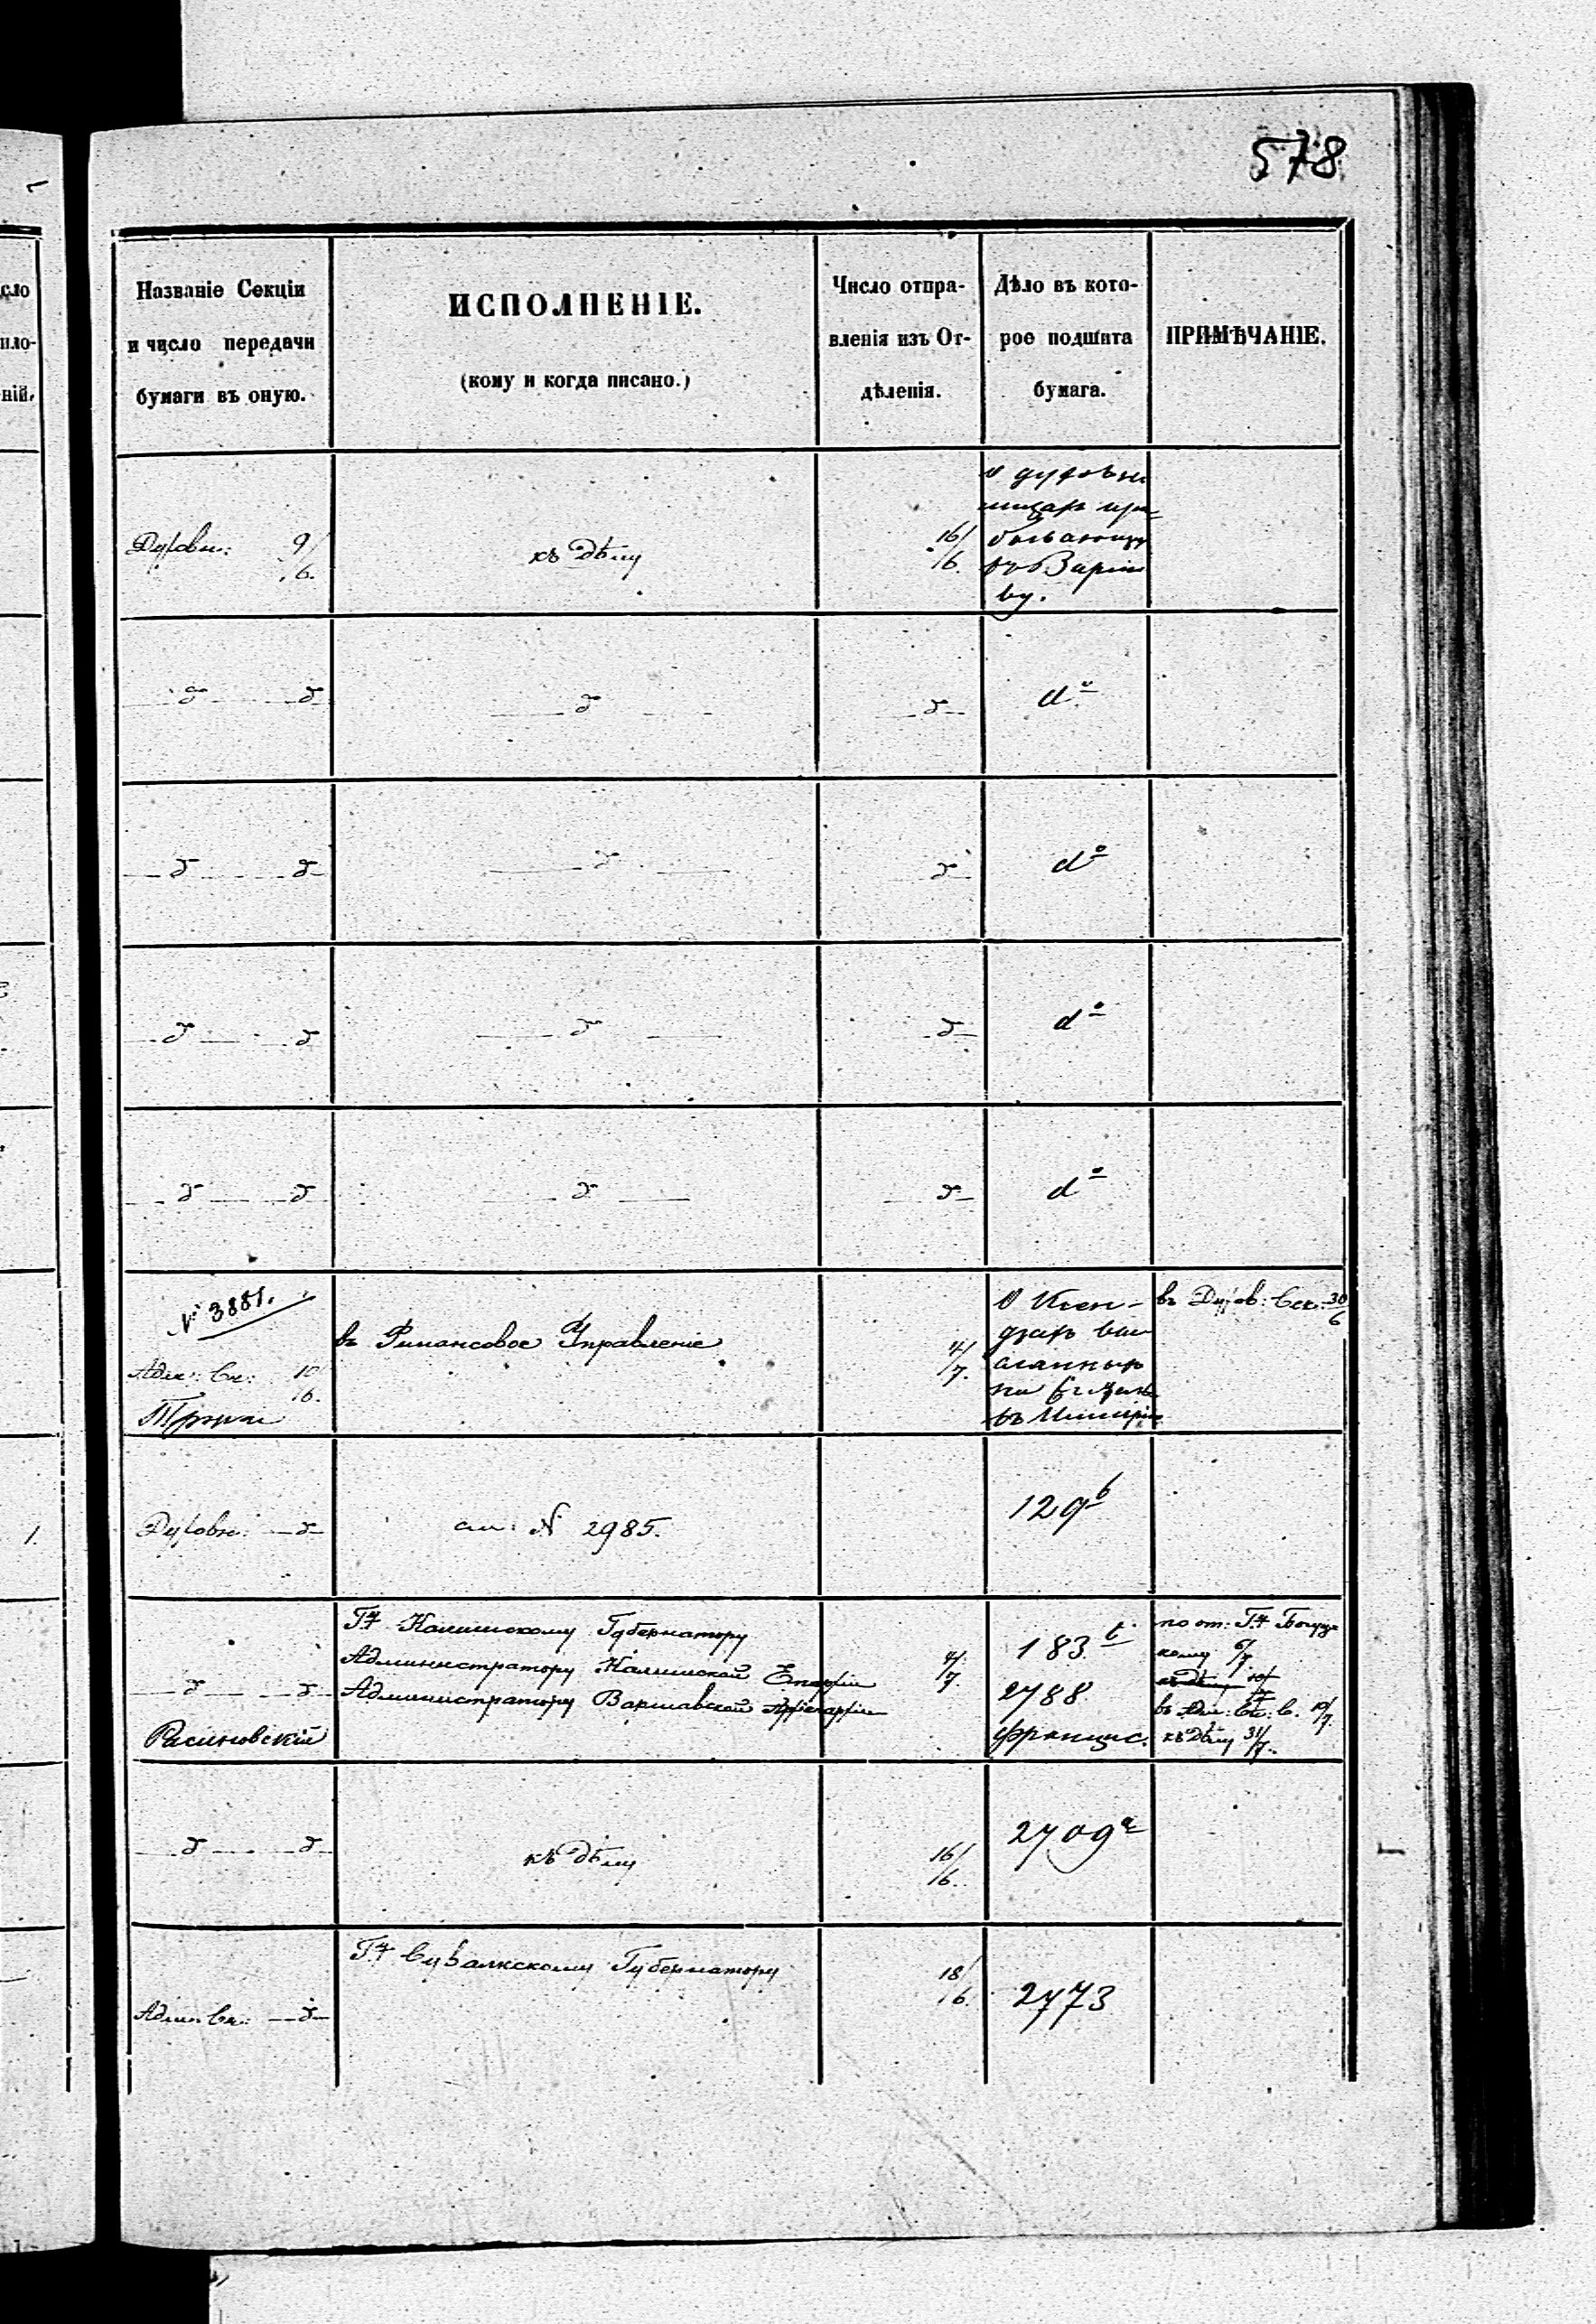 578
Названіе Секціи
и число передачи
бумаги въ оную.
ИСПОЛНЕНІЕ.
(кому и когда писано.)
Число отпра-
вленія изъ От-
дѣленія.
Дѣло въ кото-
рое подшита
бумага.
ПРИМѢЧАНІЕ.
Духовн: 9/6.
къ дѣлу
16/6.
о духовн
лицахъ при-
бывающ
въ Варша
ву.
д д
д
д
dº
д д
д
д
dº
д д
д
д
dº
д д
д
д
dº
№ 3881.
Адм: Ск: 10/6.
въ Финансовое Управленіе
4/7.
О Ксен-
дзахъ вы
сланныхъ
на
въ Имперію
въ Духов: Сек: 30/6
Духовн: д
см: № 2985.
129 b
д д
Расиновскій
Гну Калишскому Губернатору
Администратору Калишской Епархіи
Администратору Варшавской Архіепархіи
4/7.
183 t.
2788
Францис.
по от: Гну
кому 6/7
къ дѣлу 10/7
въ Адм: Ск: С. 10/7.
къ дѣлу 31/7.
д д
къ дѣлу
16/6.
2709 a
Адм: Ск: д
Гну Сувалкскому Губернатору
18/6.
2773
сло
ило-
ній.
1.